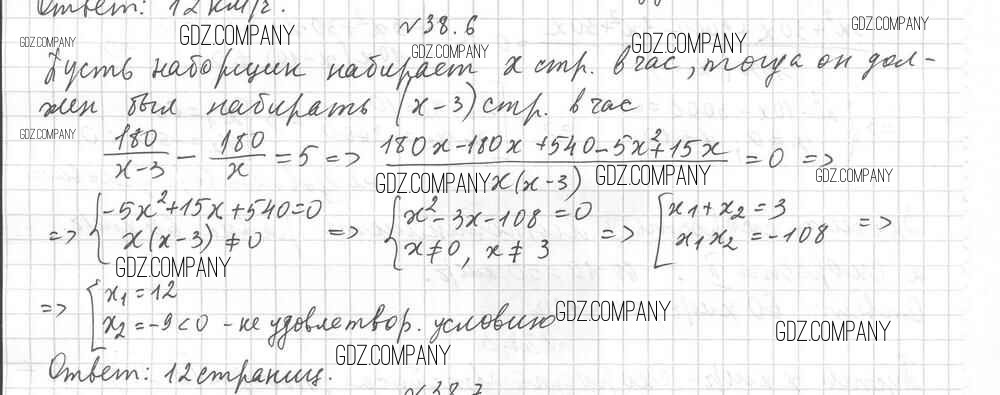 Ответ: 12 км/г.
№38.6
GDZ.COMPANY GDZ.COMPANY GDZ.COMPANY GDZ.COMPANY GDZ.COMPANY
Пусть наборщик набирает x стр. в час, тогда он дол-
жен был набирать (x-3) стр. в час
GDZ.COMPANY
180/(x-3) - 180/x = 5 => (180x-180x+540-5x²+15x)/(x(x-3)) = 0 =>
GDZ.COMPANY GDZ.COMPANY GDZ.COMPANY
=> { -5x²+15x+540=0 => { x²-3x-108=0 => [ x₁+x₂=3 =>
x(x-3)≠0 x≠0, x≠3 x₁x₂=-108
GDZ.COMPANY
=> [ x₁=12
x₂=-9<0 - не удовлетвор. условию GDZ.COMPANY GDZ.COMPANY
GDZ.COMPANY
Ответ: 12 страниц.
№38.7